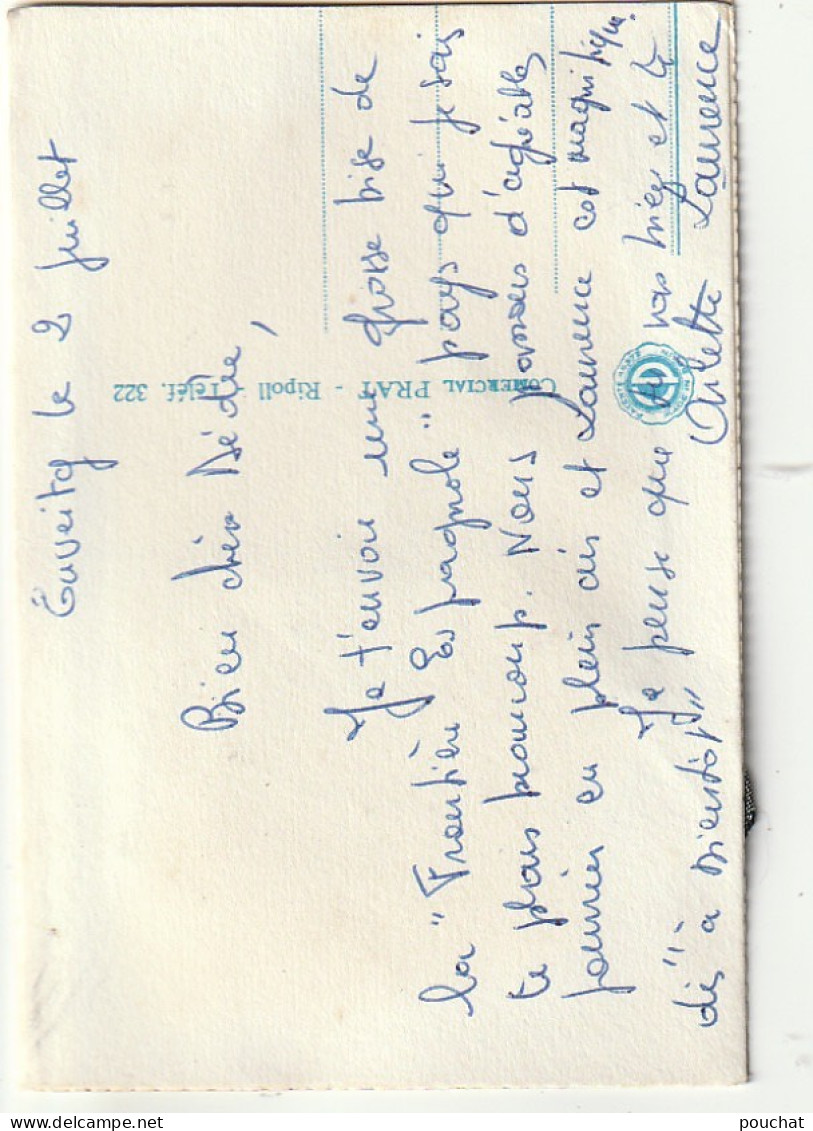 Enveitg le 2 Juillet
Bien chère Dédée,
Je t'envoie une grosse bise de
la "Frontière Espagnole" pays qui je sais
te plais beaucoup. Nous passons d'agréables
journées en plein air et Laurence est magnifique.
Je pense que tu vas bien et te
dis "à bientôt"
Arlette Laurence
COMERCIAL PRAT - Ripoll - Teléf. 322
pouchat